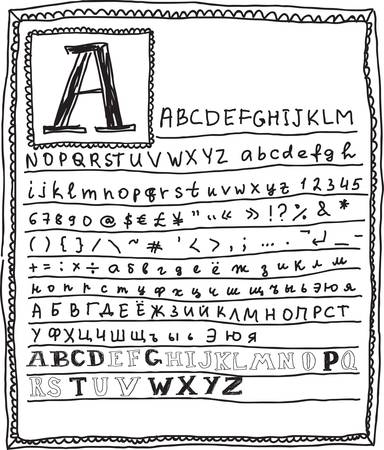 A
ABCDEFGHIJKLM
NOPQRSTUVWXYZ abcdefgh
ijklmnopqrstuvwxyz 12345
67890 @ $ € £ ¥ " " « » !?% & *
( ) { } / \ ~ # ' < > , ; … .
+ = : × ÷ а б в г д е ё ж з и к л м
н о п р с т у ф х ц ч ш щ ъ ы ь э ю я
А Б В Г Д Е Ё Ж З И Й К Л М Н О П Р С Т
У Ф Х Ц Ч Ш Щ Ъ Ы Ь Э Ю Я
ABCDEFGHIJKLMNOPQ
RSTUVWXYZ